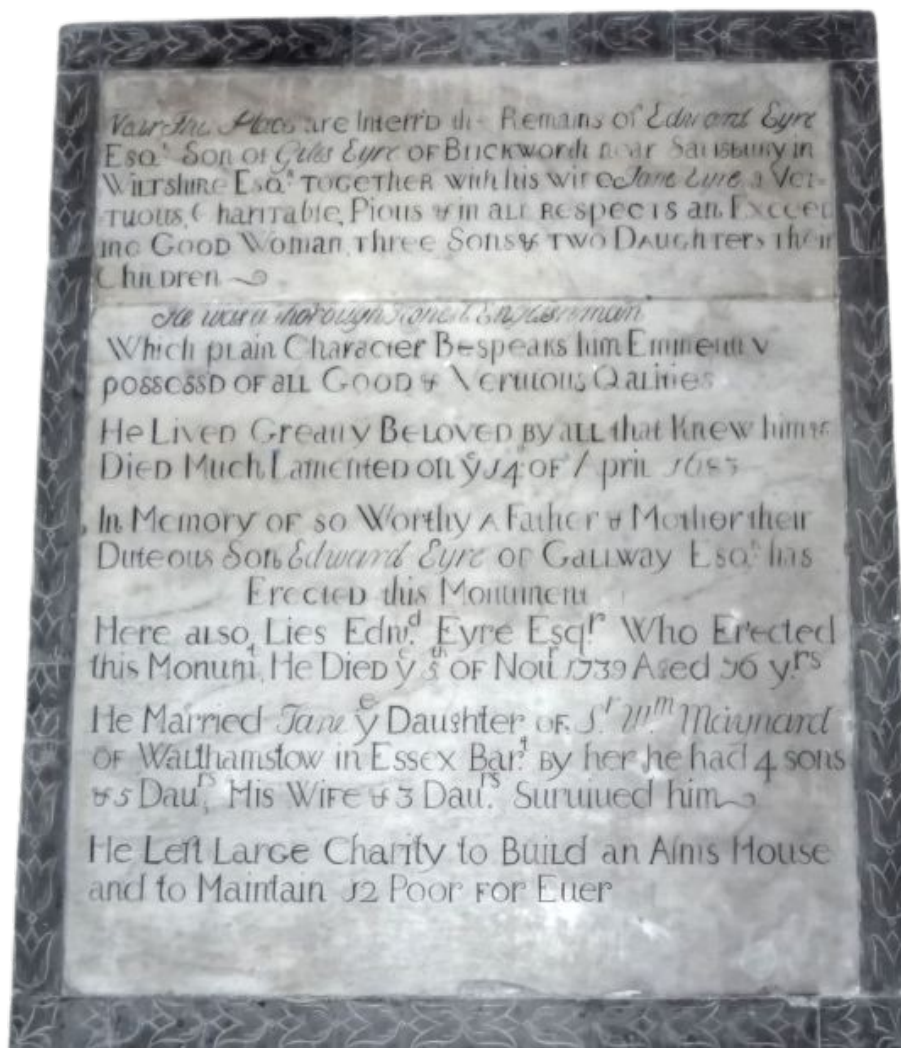 Near this Place are Interr'd the Remains of Edward Eyre
Esq.r Son of Giles Eyre of Brickworth near Salisbury in
Wiltshire Esq.r together with his wife Jane Eyre a Ver-
tuous, Charitable, Pious & in all respects an Exceed
ing Good Woman, Three Sons & two Daughters their
Children
He was a thorough honest Englishman
Which plain Character Bespeaks him Eminently
possessd of all Good & Vertuous Qalities
He Lived Greatly Beloved by all that Knew him &
Died Much Lamented on ye 14 of April 1683
In Memory of so Worthy A Father & Mother their
Duteous Son Edward Eyre of Gallway Esq.r has
Erected this Monument
Here also Lies Edw.d Eyre Esq.r Who Erected
this Monum.t He Died ye 5th of Nou.r 1739 Aged 76 y.rs
He Married Jane ye Daughter of S.r W.m Maynard
of Walthamstow in Essex Bar.t by her he had 4 sons
& 5 Dau.rs, His Wife & 3 Dau.rs Suruiued him
He Left Large Charity to Build an Alms House
and to Maintain 12 Poor for Euer